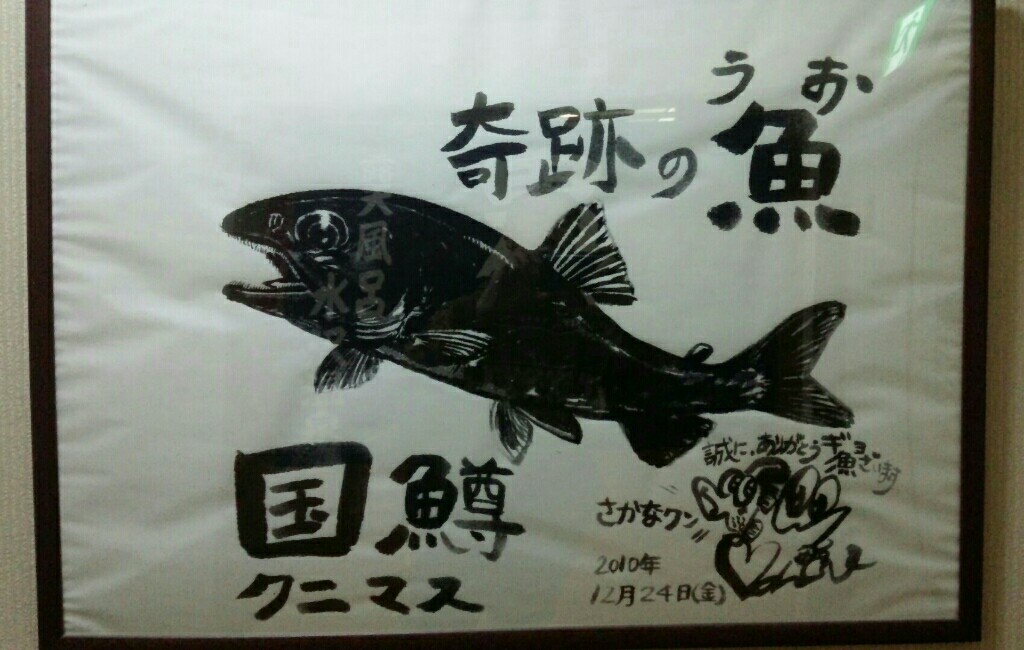 うお
奇跡の魚
大風呂
国鱒
クニマス
誠に、ありがとうギョ
魚ざい
さかなクン
2010年
12月24日(金)